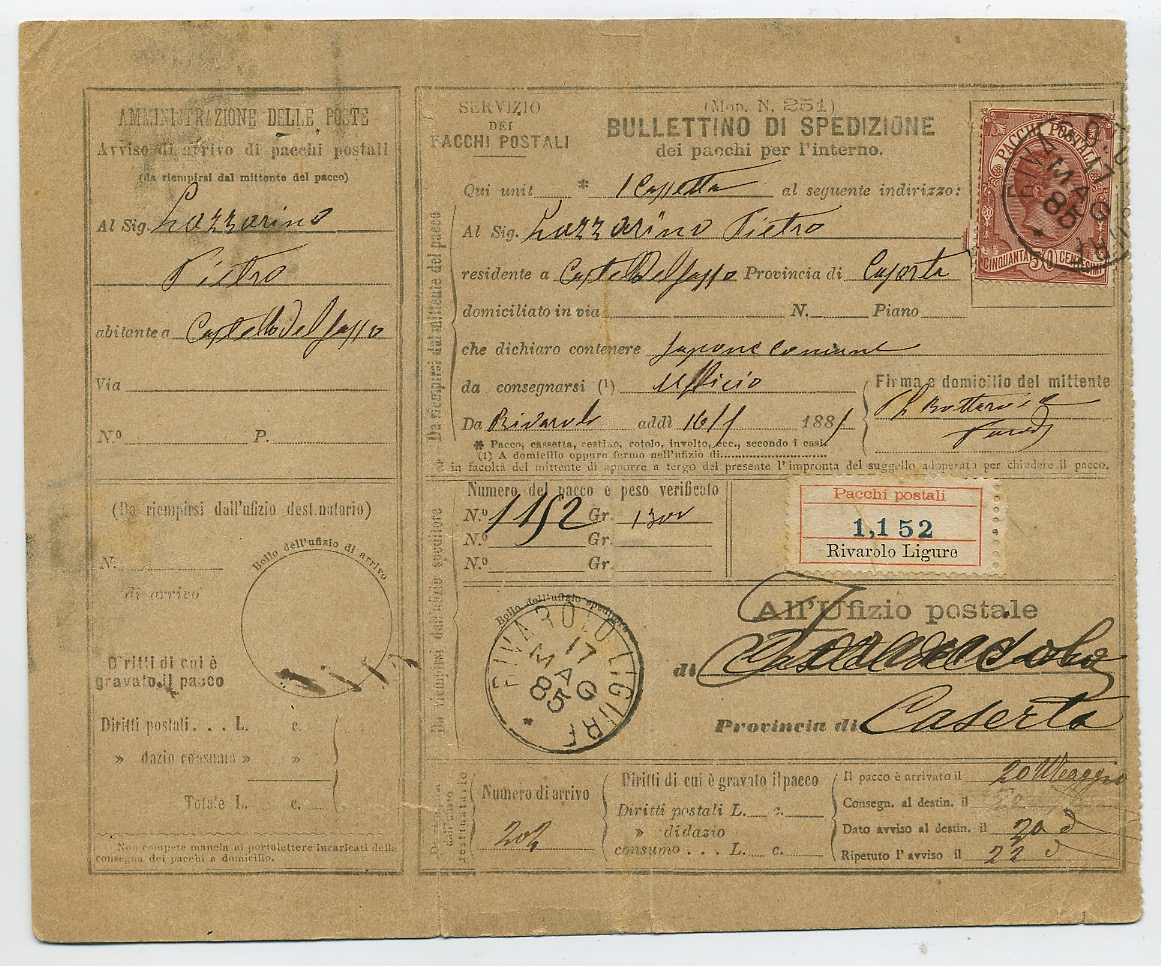 AMMINISTRAZIONE DELLE POSTE
Avviso di arrivo di pacchi postali
(da riempirsi dal mittente del pacco)
Al Sig. Lazzarino
Pietro
abitante a Castello del Sasso
Via
N.º P.
(Da riempirsi dall'ufizio dest.natario)
N.
di arrivo
Bollo dell'ufizio di arrivo
Diritti di cui è
gravato il pacco
Diritti postali . . . L. c.
» dazio consumo » »
Totale L. c.
Non compete mancia ai portalettere incaricati della
consegna dei pacchi a domicilio.
SERVIZIO
DEI
PACCHI POSTALI
(Mod. N. 251)
BULLETTINO DI SPEDIZIONE
dei pacchi per l'interno.
PACCHI POSTALI
CINQUANTA 50 CENTESIMI
RIVAROLO LIGURE
17
MAG
85
Da riempirsi dal mittente del pacco
Qui unit * 1 Cassetta al seguente indirizzo:
Al Sig. Lazzarino Pietro
residente a Castel Del Sasso Provincia di Caserta
domiciliato in via N. Piano
che dichiaro contenere sapone comune
da consegnarsi (1) Ufficio
Firma e domicilio del mittente
Da Rivarolo addì 16/5 1885
* Pacco, cassetta, cestino, rotolo, involto, ecc., secondo i casi.
(1) A domicilio oppure fermo nell'ufizio di
È in facoltà del mittente di apporre a tergo del presente l'impronta del suggello adoperato per chiudere il pacco.
Da riempirsi dall'ufizio speditore
Numero del pacco e peso verificato
N.º 1152 Gr. 1300
N.º Gr.
N.º Gr.
Pacchi postali
1,152
Rivarolo Ligure
Bollo dell'ufizio speditore
RIVAROLO LIGURE
17
MAG
85
All'Ufizio postale
di
Provincia di Caserta
Da riempirsi dall'ufizio destinatario
Numero di arrivo
204
Diritti di cui è gravato il pacco
Diritti postali L. c.
» di dazio
consumo . . . L. c.
Il pacco è arrivato il 20 Maggio
Consegn. al destin. il
Dato avviso al destin. il 20 d
Ripetuto l'avviso il 22 d